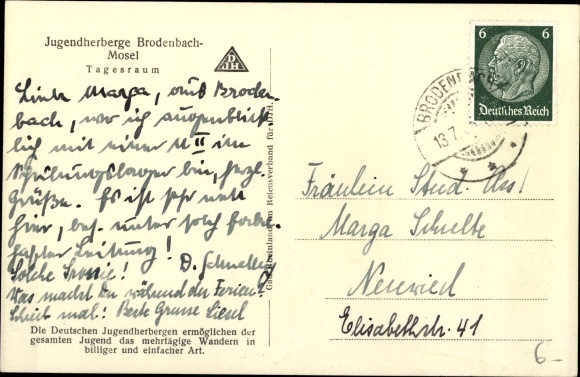 Jugendherberge Brodenbach-
Mosel
Tagesraum
DJH
Liebe Marga, aus Broden
bach, wo ich augenblick
lich mit einer U II im
Schulungslager bin, herzl.
Grüße. Es ist sehr nett
hier, bes. unter solch
hafter Leitung!
Solche Ironie! D. Schnellig
Was machst Du während der Ferien?
Schreib mal! Beste Grüsse Liesel
Die Deutschen Jugendherbergen ermöglichen der
gesamten Jugend das mehrtägige Wandern in
billiger und einfacher Art.
Gau Rheinland im Reichsverband für DJH.
6 6
Deutsches Reich
BRODENBACH
13.7.
Fräulein Stud. Ass.
Marga Schulte
Neuwied
Elisabethstr. 41
6-